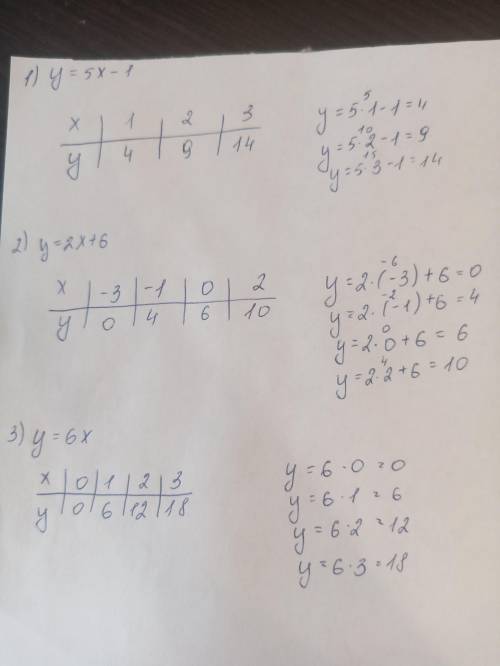 1) y = 5x - 1
x | 1 | 2 | 3
y | 4 | 9 | 14
5
y = 5 · 1 - 1 = 4
10
y = 5 · 2 - 1 = 9
15
y = 5 · 3 - 1 = 14
2) y = 2x + 6
x | -3 | -1 | 0 | 2
y | 0 | 4 | 6 | 10
-6
y = 2 · (-3) + 6 = 0
-2
y = 2 · (-1) + 6 = 4
0
y = 2 · 0 + 6 = 6
4
y = 2 · 2 + 6 = 10
3) y = 6x
x | 0 | 1 | 2 | 3
y | 0 | 6 | 12 | 18
y = 6 · 0 = 0
y = 6 · 1 = 6
y = 6 · 2 = 12
y = 6 · 3 = 18